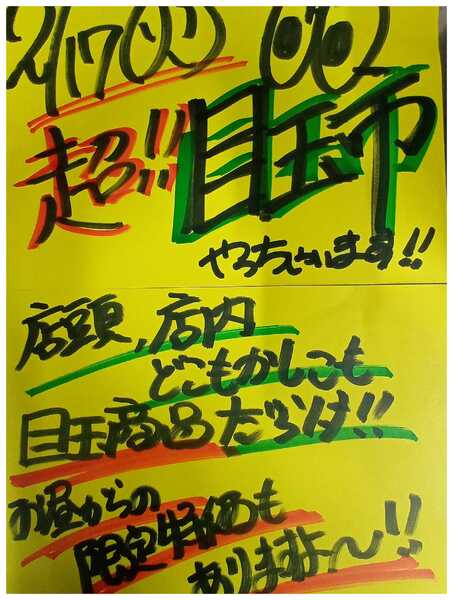 2/17(火)
超!!目玉市
やっちゃいます!!
店頭、店内
どこもかしこも
目玉商品だらけ!!
お昼からの
限定特価も
ありますよ〜!!